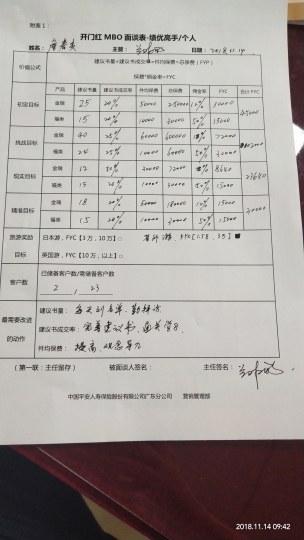 附表1：
开门红 MBO 面谈表-绩优高手/个人
姓名： 主管： 日期：2018.11.14
价值公式 建议书量×建议书成交率×件均保费=总保费（FYP）
保费*佣金率=FYC
产品 建议书量 建议书成交率 件均保费 总保费 佣金率 FYC 合计 FYC
初定目标 金瑞 25 20% 50000 250000 12% 30000 45000
福类 15 20% 10000 30000 50% 15000
挑战目标 金瑞 40 25% 60000 600000 72000
福类 24 25% 10000 60000 50% 30000
现实目标 金瑞 12 30000 72000 8640 23640
福类 15 20% 10000 30000 50% 15000
精准目标 金瑞 18 50000 15000 30000
福类 15 20% 10000 30000 50% 15000
旅游奖励 日本游，FYC【3万，10万】□
目标 英国游，FYC【10万，以上】□
客户数 已储备客户数/需储备客户数
2 / 23
最需要改进的动作 建议书量：每天列名单，勤拜访
建议书成交率：完善建议书，通关学习
件均保费：提高
（第一联：主任留存） 被面谈人签名： 主任签名：
中国平安人寿保险股份有限公司广东分公司 营销管理部
2018.11.14 09:42